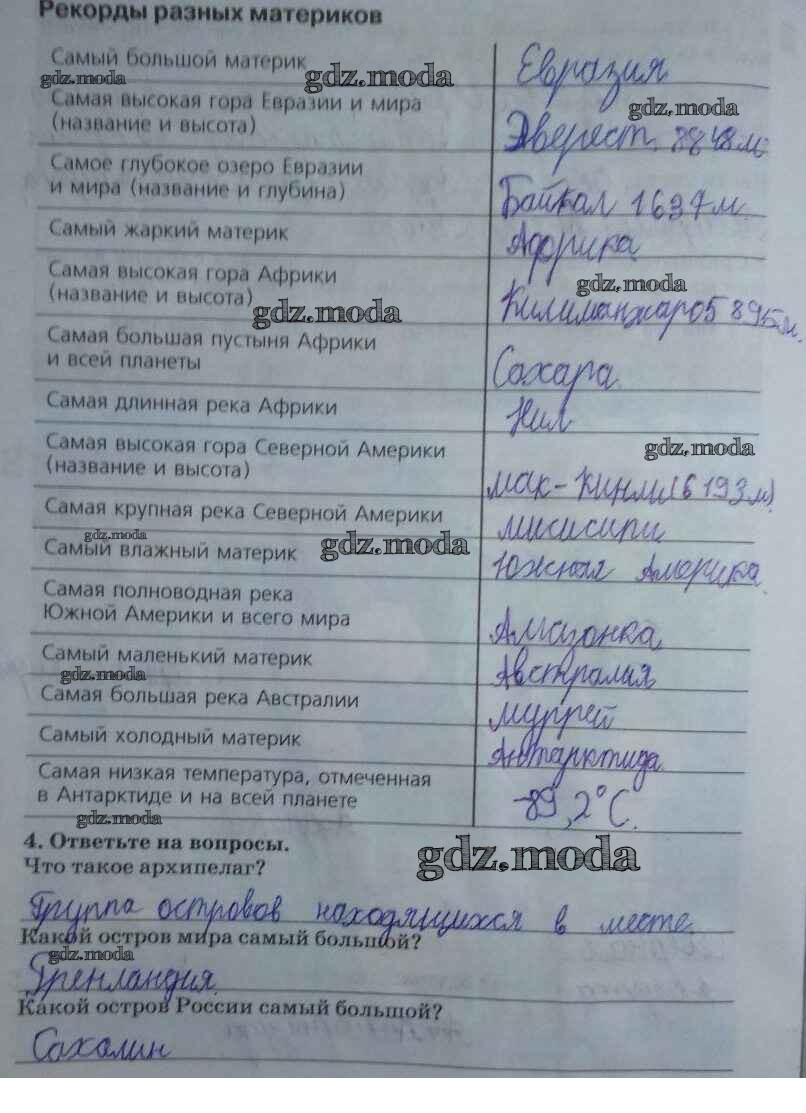 Рекорды разных материков
Самый большой материк
Евразия
gdz.moda
gdz.moda
Самая высокая гора Евразии и мира
(название и высота)
gdz.moda
Эверест. 8848м
Самое глубокое озеро Евразии
и мира (название и глубина)
Байкал 1637м.
Самый жаркий материк
Африка
Самая высокая гора Африки
(название и высота)
gdz.moda
gdz.moda
Килиманжаро5895м.
Самая большая пустыня Африки
и всей планеты
Сахара.
Самая длинная река Африки
Нил
Самая высокая гора Северной Америки
(название и высота)
gdz.moda
мак-Кинли(6193м)
Самая крупная река Северной Америки
мисисипи
gdz.moda
gdz.moda
Самый влажный материк
Южная Америка.
Самая полноводная река
Южной Америки и всего мира
Амазонка
Самый маленький материк
Австралия
gdz.moda
Самая большая река Австралии
муррей
Самый холодный материк
Антарктида
Самая низкая температура, отмеченная
в Антарктиде и на всей планете
-89,2°С.
gdz.moda
4. Ответьте на вопросы.
Что такое архипелаг?
gdz.moda
Группа островов находящихся в месте
Какой остров мира самый большой?
gdz.moda
Гренландия.
Какой остров России самый большой?
Сахалин